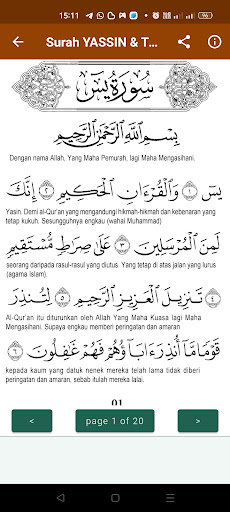 15:11
96
Surah YASSIN & T...
سورة يس
بسم الله الرحمن الرحيم
Dengan nama Allah, Yang Maha Pemurah, lagi Maha Mengasihani.
يسٓ ١ وَٱلْقُرْءَانِ ٱلْحَكِيمِ ٢ إِنَّكَ
Yasin. Demi al-Qur'an yang mengandungi hikmah-hikmah dan kebenaran yang
tetap kukuh. Sesungguhnya engkau (wahai Muhammad)
لَمِنَ ٱلْمُرْسَلِينَ ٣ عَلَىٰ صِرَٰطٍ مُّسْتَقِيمٍ
seorang daripada rasul-rasul yang diutus. Yang tetap di atas jalan yang lurus
(agama Islam).
٤ تَنزِيلَ ٱلْعَزِيزِ ٱلرَّحِيمِ ٥ لِتُنذِرَ
Al-Qur'an itu diturunkan oleh Allah Yang Maha Kuasa lagi Maha
Mengasihani. Supaya engkau memberi peringatan dan amaran
قَوْمًا مَّآ أُنذِرَ ءَابَآؤُهُمْ فَهُمْ غَٰفِلُونَ ٦
kepada kaum yang datuk nenek mereka telah lama tidak diberi
peringatan dan amaran, sebab itulah mereka lalai.
<
page 1 of 20
>